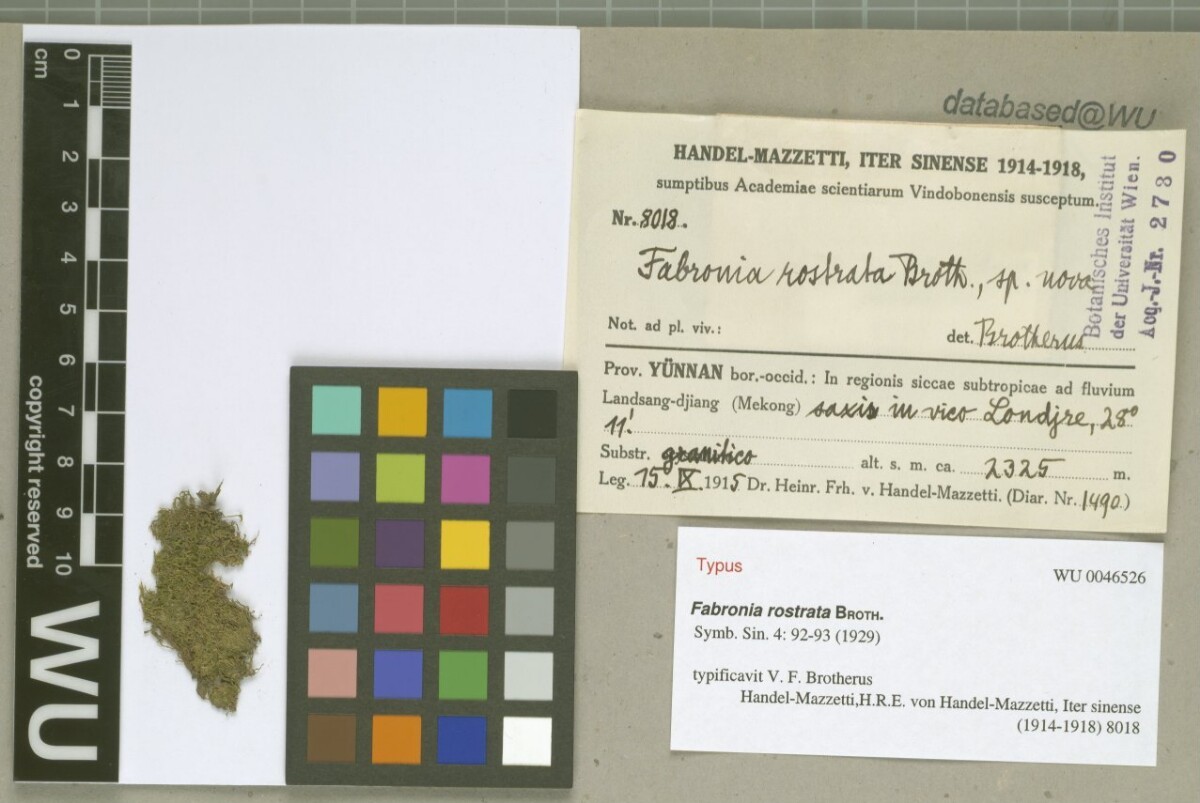 databased@WU
HANDEL-MAZZETTI, ITER SINENSE 1914-1918,
sumptibus Academiae scientiarum Vindobonensis susceptum.
Nr. 8018.
Fabronia rostrata Broth., sp. nova
Not. ad pl. viv.:
det. Brotherus
Prov. YÜNNAN bor.-occid.: In regionis siccae subtropicae ad fluvium
Landsang-djiang (Mekong) saxis in vico Londjre, 28°
11'
Substr. granitico alt. s. m. ca. 2325 m.
Leg. 15. IX. 1915 Dr. Heinr. Frh. v. Handel-Mazzetti. (Diar. Nr. 1490.)
Botanisches Institut
der Universität Wien.
Acq.-J.-Nr. 2730
Typus
WU 0046526
Fabronia rostrata BROTH.
Symb. Sin. 4: 92-93 (1929)
typificavit V. F. Brotherus
Handel-Mazzetti,H.R.E. von Handel-Mazzetti, Iter sinense
(1914-1918) 8018
cm
0
1
2
3
4
5
6
7
8
9
10
copyright reserved
WU